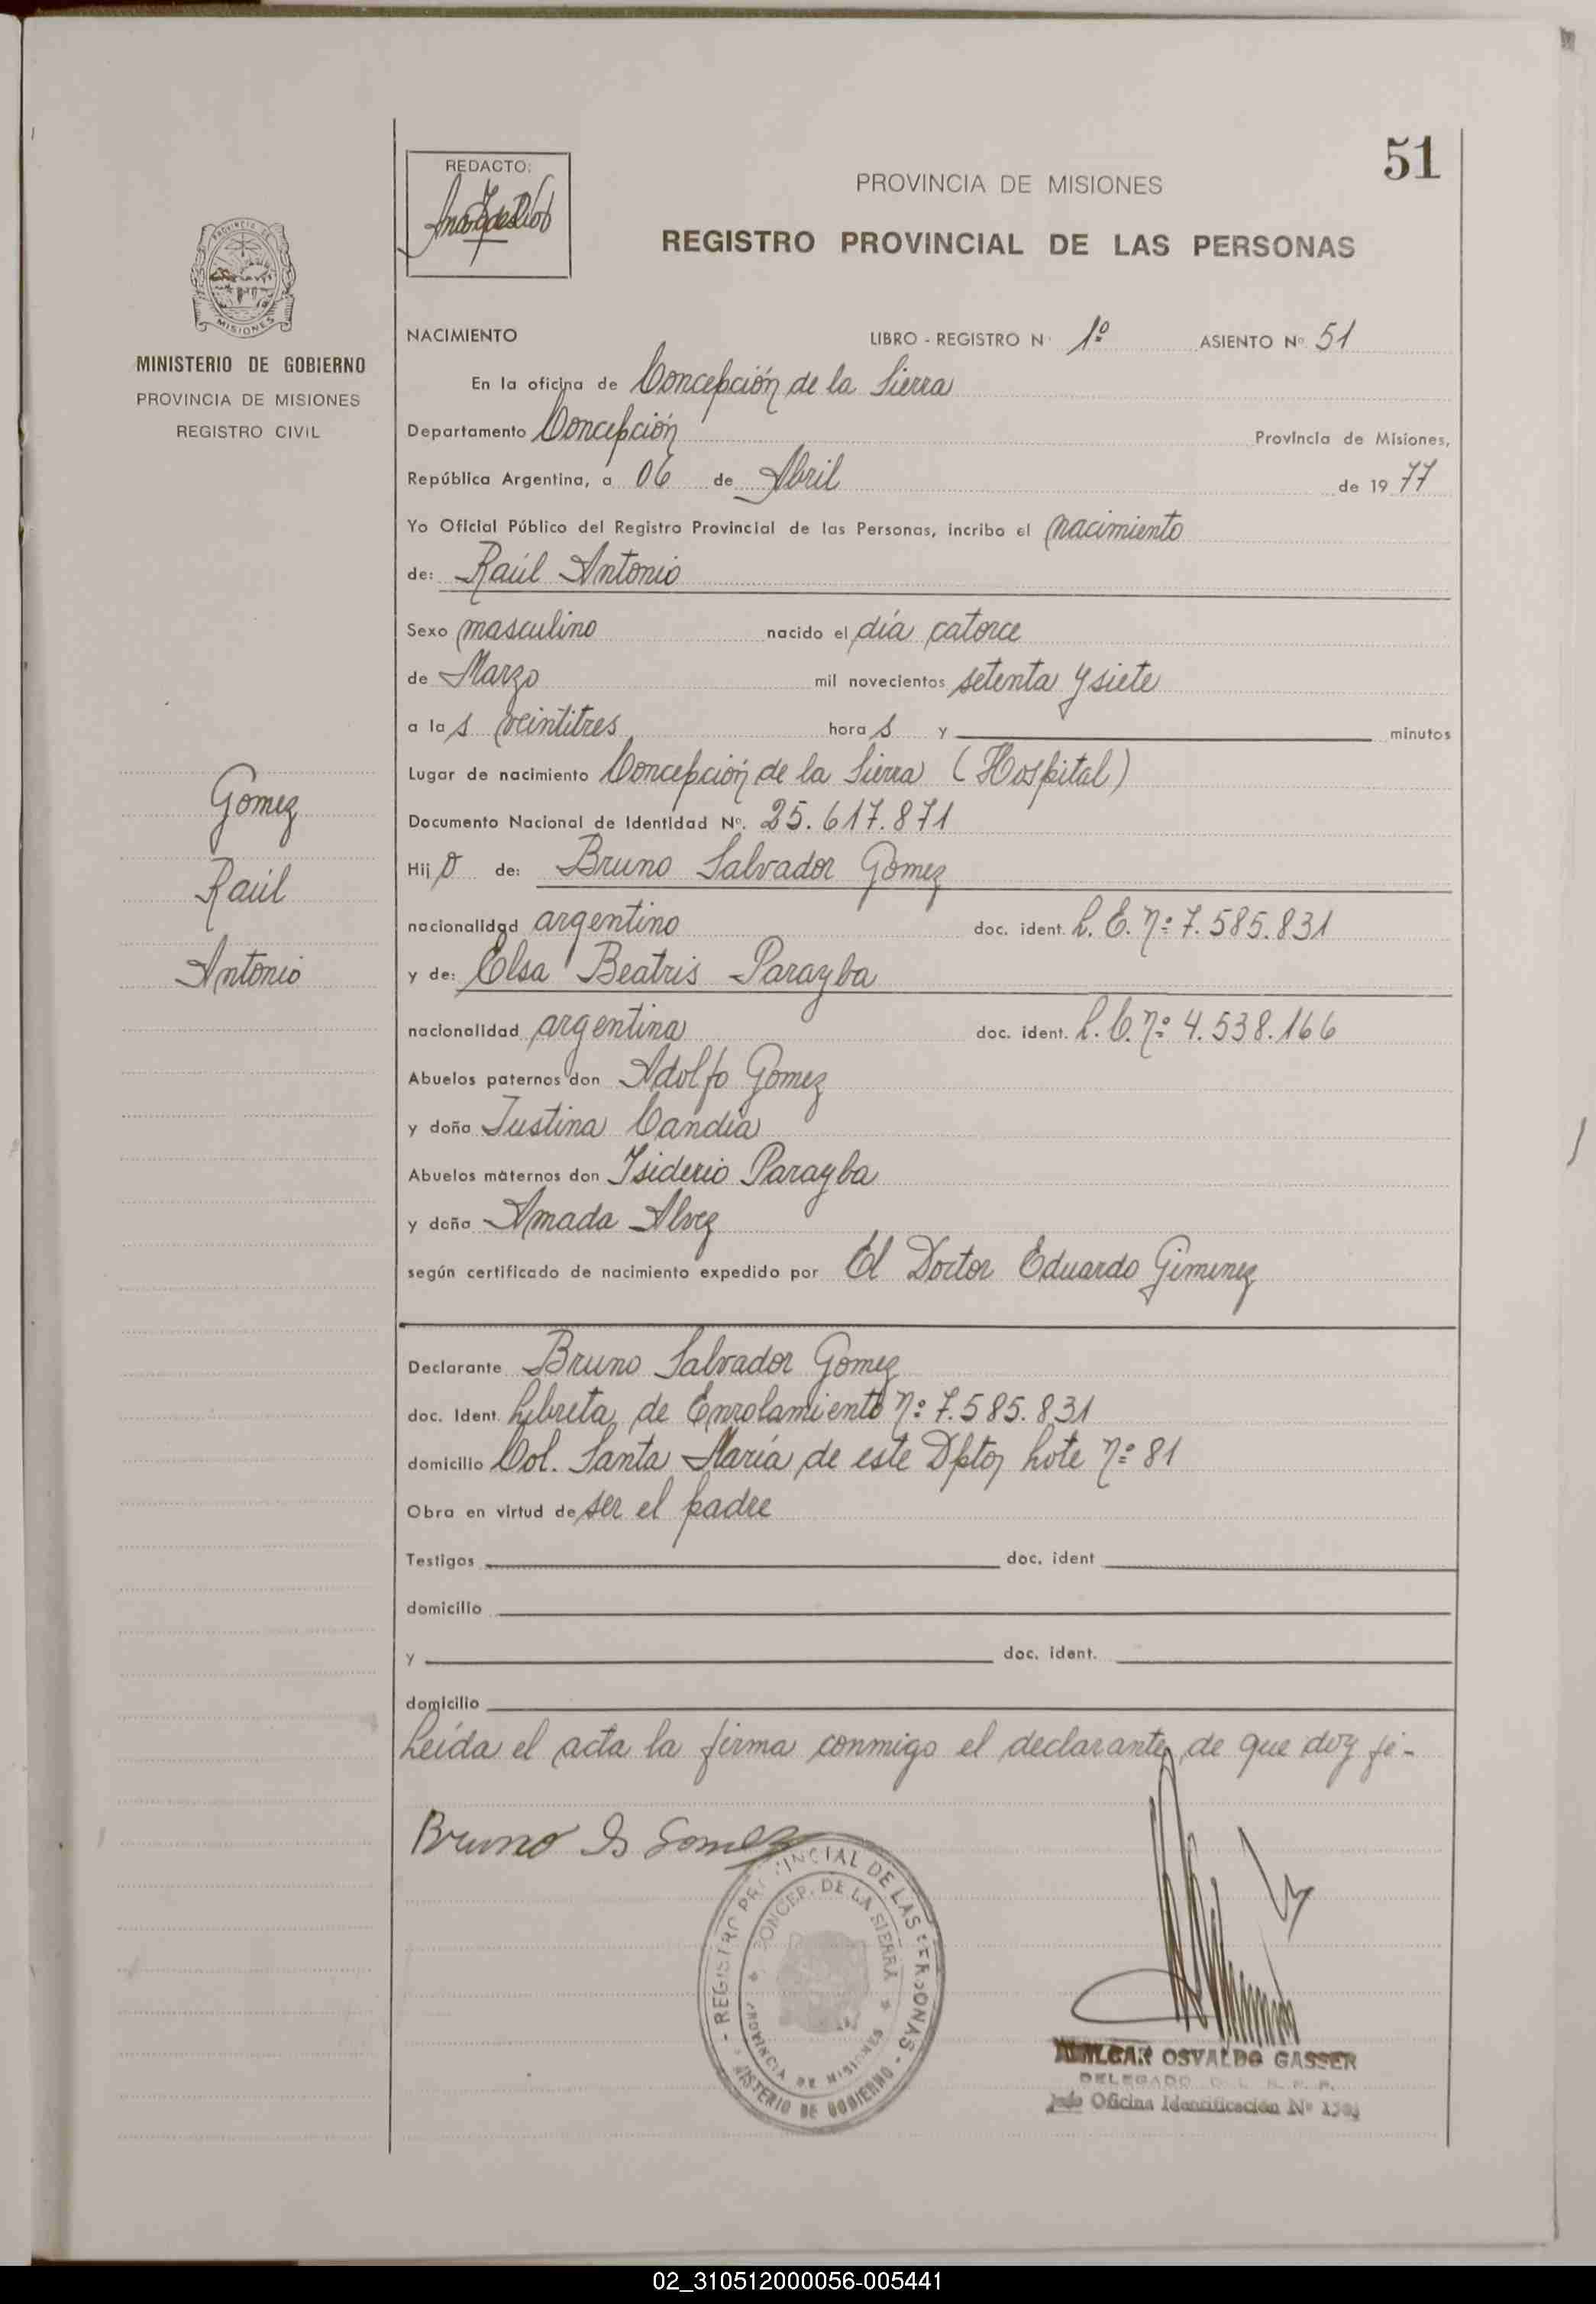 51
REDACTO:
PROVINCIA DE MISIONES
REGISTRO PROVINCIAL DE LAS PERSONAS
MISIONES
MINISTERIO DE GOBIERNO
PROVINCIA DE MISIONES
REGISTRO CIVIL
Gomez
Raúl
Antonio
NACIMIENTO LIBRO - REGISTRO N° 1º ASIENTO Nº 51
En la oficina de Concepción de la Sierra
Departamento Concepción Provincia de Misiones,
República Argentina, a 06 de Abril de 1977
Yo Oficial Público del Registro Provincial de las Personas, incribo el nacimiento
de: Raúl Antonio
Sexo masculino nacido el día catorce
de Marzo mil novecientos setenta y siete
a las veintitres horas y minutos
Lugar de nacimiento Concepción de la Sierra (Hospital)
Documento Nacional de Identidad Nº. 25.617.871
Hijo de: Bruno Salvador Gomez
nacionalidad argentino doc. ident. L. E. nº 7.585.831
y de: Elsa Beatris Parayba
nacionalidad argentina doc. ident. L. C. nº 4.538.166
Abuelos paternos don Adolfo Gomez
y doña Justina Candia
Abuelos maternos don Isiderio Parayba
y doña Amada Alvez
según certificado de nacimiento expedido por El Doctor Eduardo Gimenez
Declarante Bruno Salvador Gomez
doc. Ident. Libreta de Enrolamiento nº 7.585.831
domicilio Col. Santa María de este Dpto, Lote nº 81
Obra en virtud de ser el padre
Testigos doc. ident
domicilio
y doc. ident.
domicilio
Leída el acta la firma conmigo el declarante, de que doy fé-
Bruno S Gomez
- REGISTRO PROVINCIAL DE LAS PERSONAS -
CONCEP. DE LA SIERRA
PROVINCIA DE MISIONES
MINISTERIO DE GOBIERNO
AMILCAR OSVALDO GASSER
DELEGADO D. L. R. P. P.
Oficina Identificación Nº
02_310512000056-005441